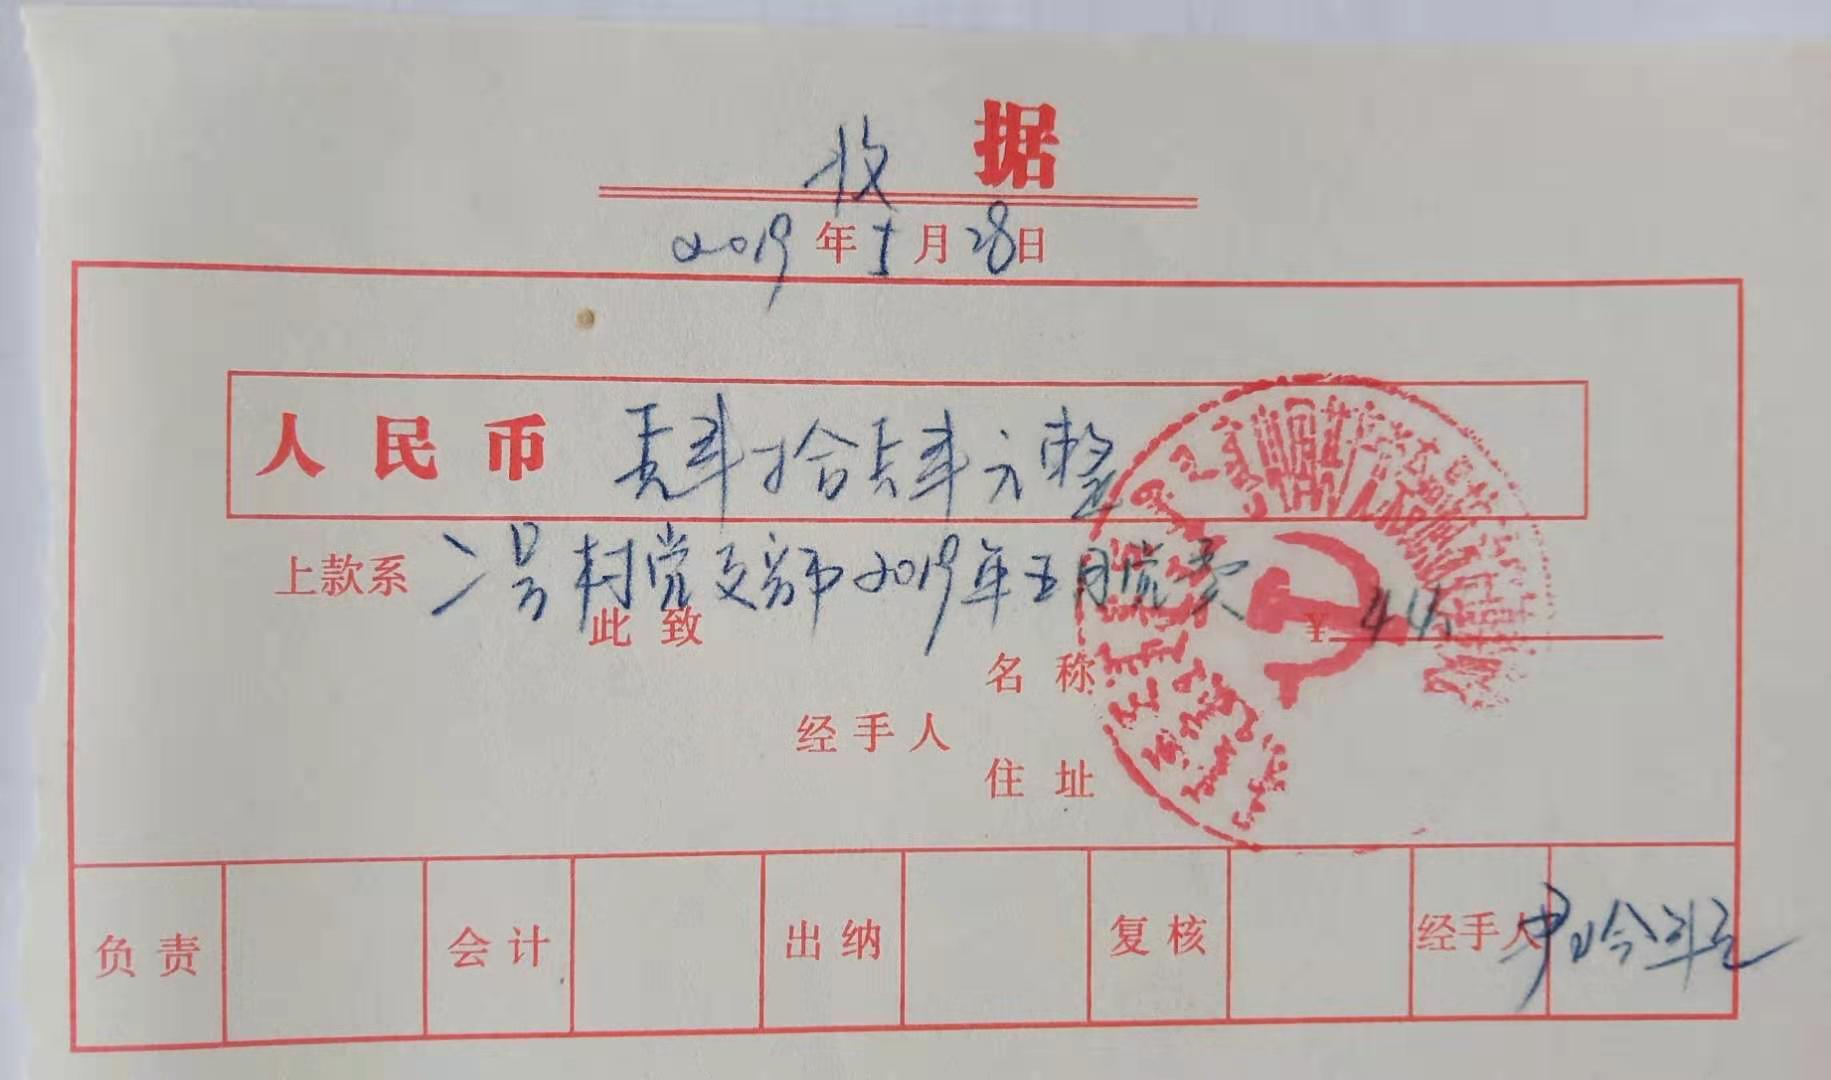 收 据
2019年5月28日
人民币 肆拾肆元整
上款系 二号村党支部2019年五月党费
此致 ¥ 44.
名称
经手人
住址
负责 会计 出纳 复核 经手人